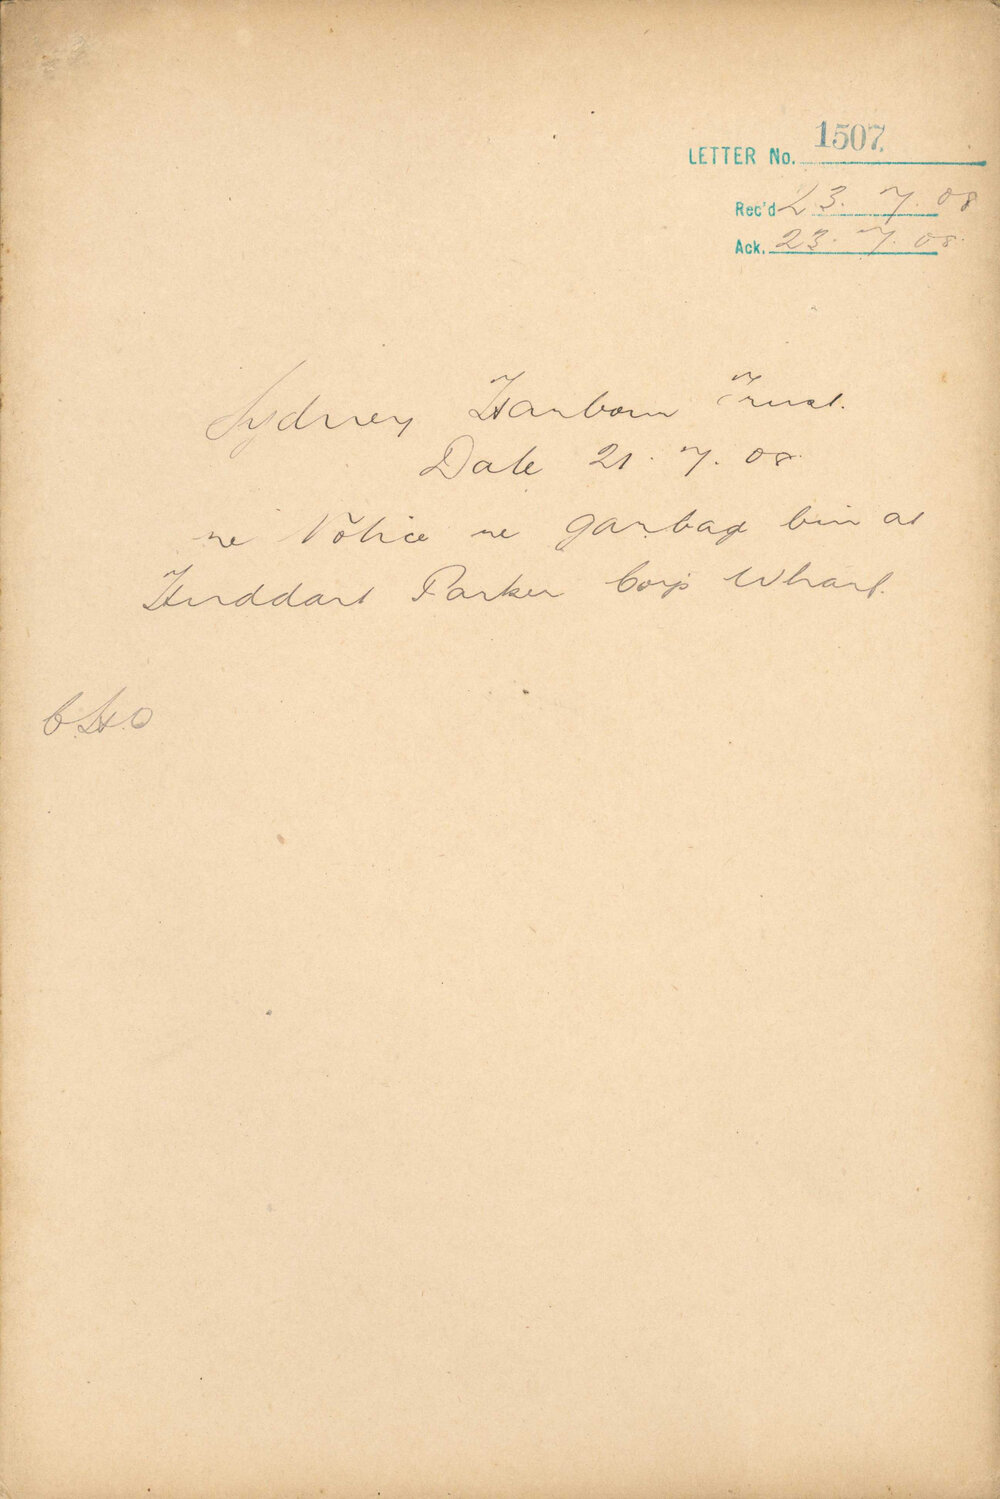 LETTER No. 1507
Rec'd 23. 7. 08
Ack. 23. 7. 08.
Sydney Harbour Trust.
Date 21. 7. 08.
re Notice re garbage bin at
Huddart Parker Coy's Wharf.
C.H.O